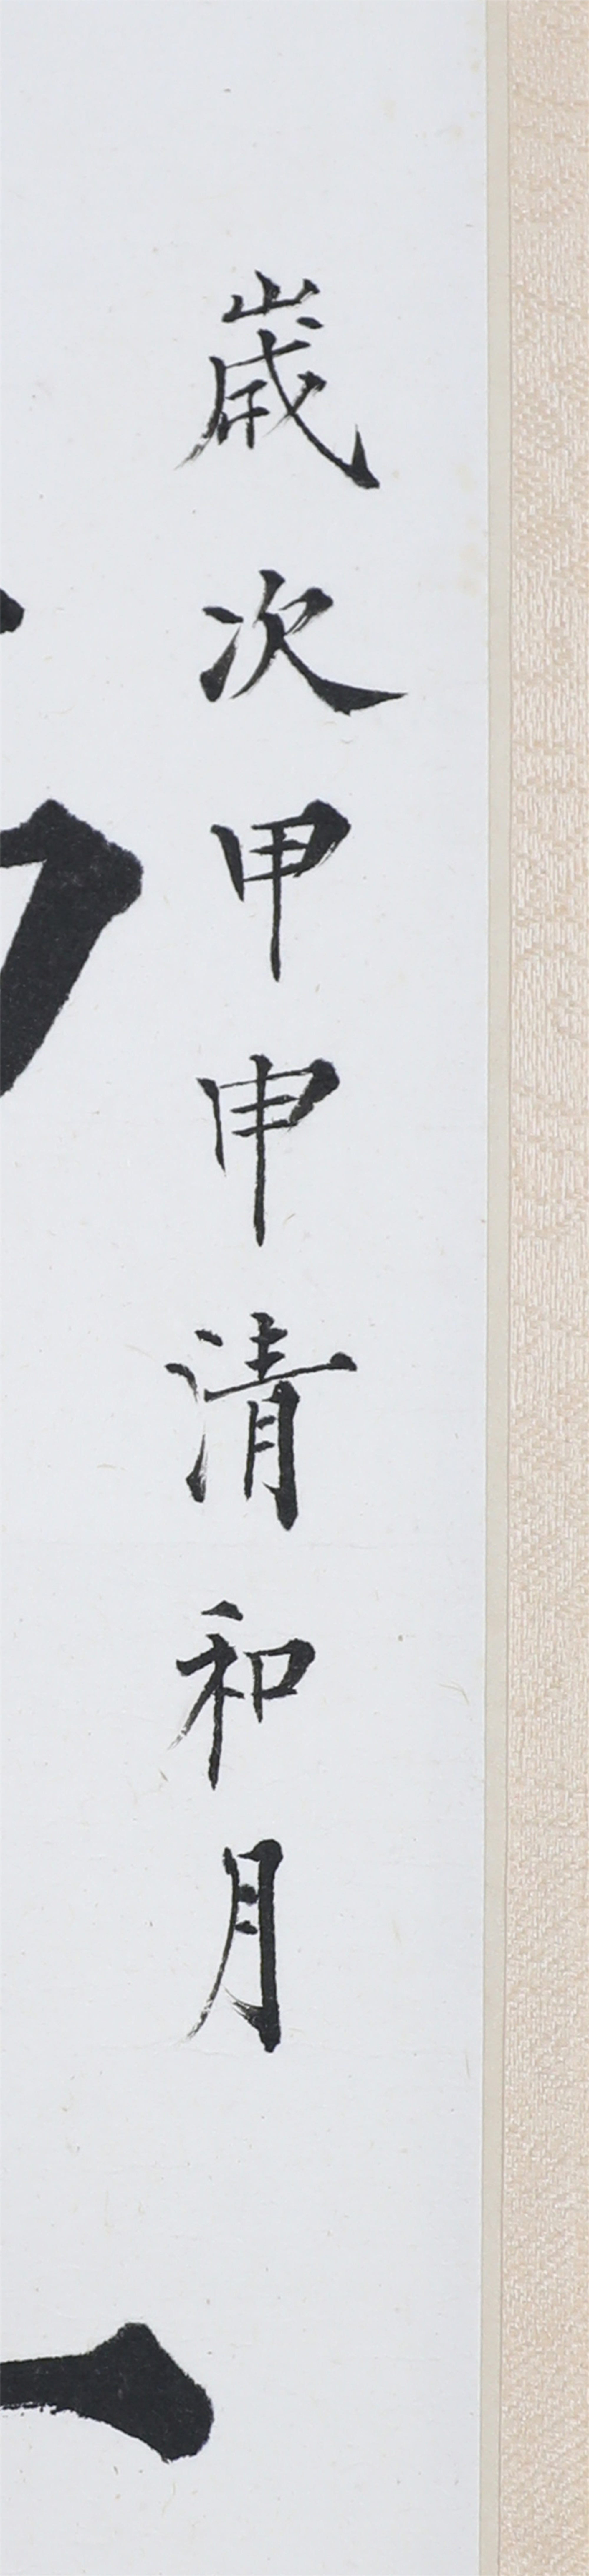 歲次甲申清和月